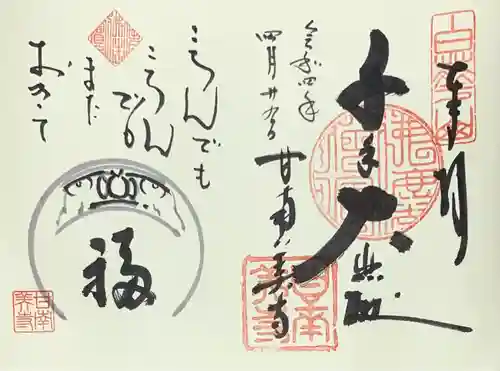 奉拝
千手大悲
令和四年
四月廿九日
甘南美寺
甘南美寺
ころんでも
ころん
でも
また
おきて
福
甘南美寺